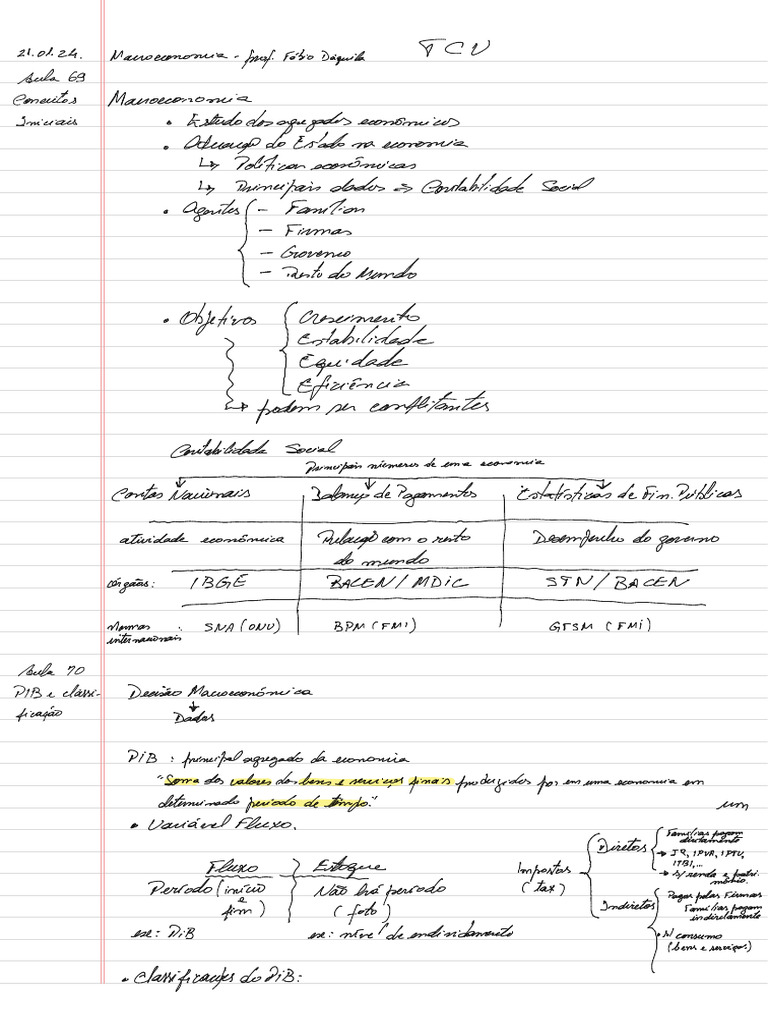 21.01.24. Macroeconomia - prof. Fábio Dáquila TCU
Aula 69
Conceitos Macroeconomia
Iniciais • Estudo dos agregados econômicos
• Atuação do Estado na economia
↳ Políticas econômicas
↳ Principais dados ⇒ Contabilidade Social
• Agentes - Famílias
- Firmas
- Governo
- Resto do Mundo
• Objetivos Crescimento
Estabilidade
Equidade
Eficiência
↳ podem ser conflitantes
Contabilidade Social
Principais números de uma economia
Contas Nacionais Balanço de Pagamentos Estatísticas de Fin. Públicas
atividade econômica Relação com o resto Desempenho do governo
do mundo
órgãos: IBGE BACEN/MDIC STN/BACEN
Normas : SNA (ONU) BPM (FMI) GFSM (FMI)
internacionais
Aula 70
PIB e classi- Decisão Macroeconômica
ficação ↓
Dados
PIB : principal agregado da economia
"Soma dos valores dos bens e serviços finais produzidos por em uma economia em
determinado período de tempo." um
• Variável Fluxo.
Fluxo Estoque
Período (início Não há período
e
fim) (foto)
ex: PIB ex: nível de endividamento
Impostos
(tax)
Diretos Famílias pagam
diretamente
→ IR, IPVA, IPTU,
ITBI,...
→ s/ renda e patri-
mônio.
Indiretos Pagos pelas Firmas
Famílias pagam
indiretamente
• s/ consumo
(bens e serviços)
• Classificações do PIB: